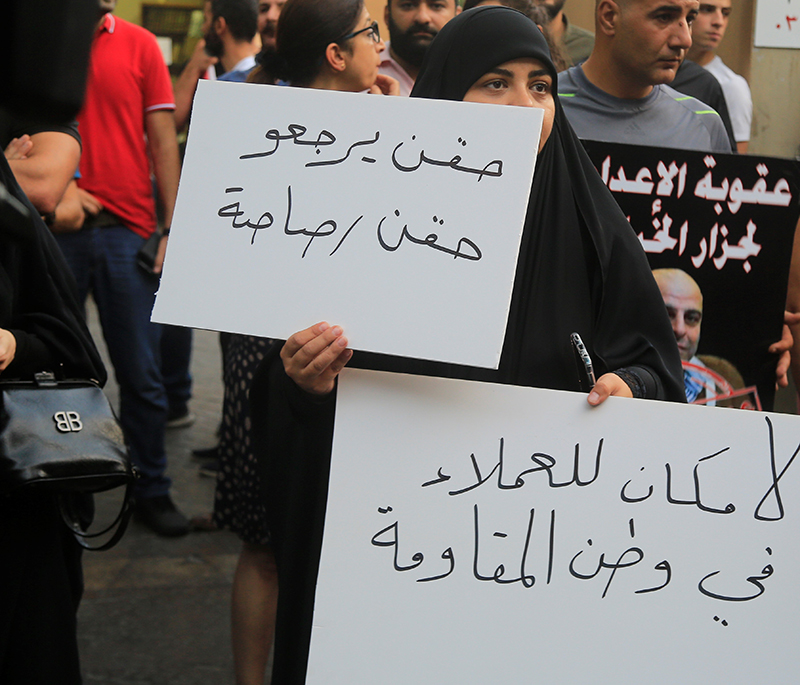 حقن يرجعو
حقن رصاصة
عقوبة الأعدا
لجزار الخيا
لا مكان للعملاء
في وطن المقاومة
BB
٠٣